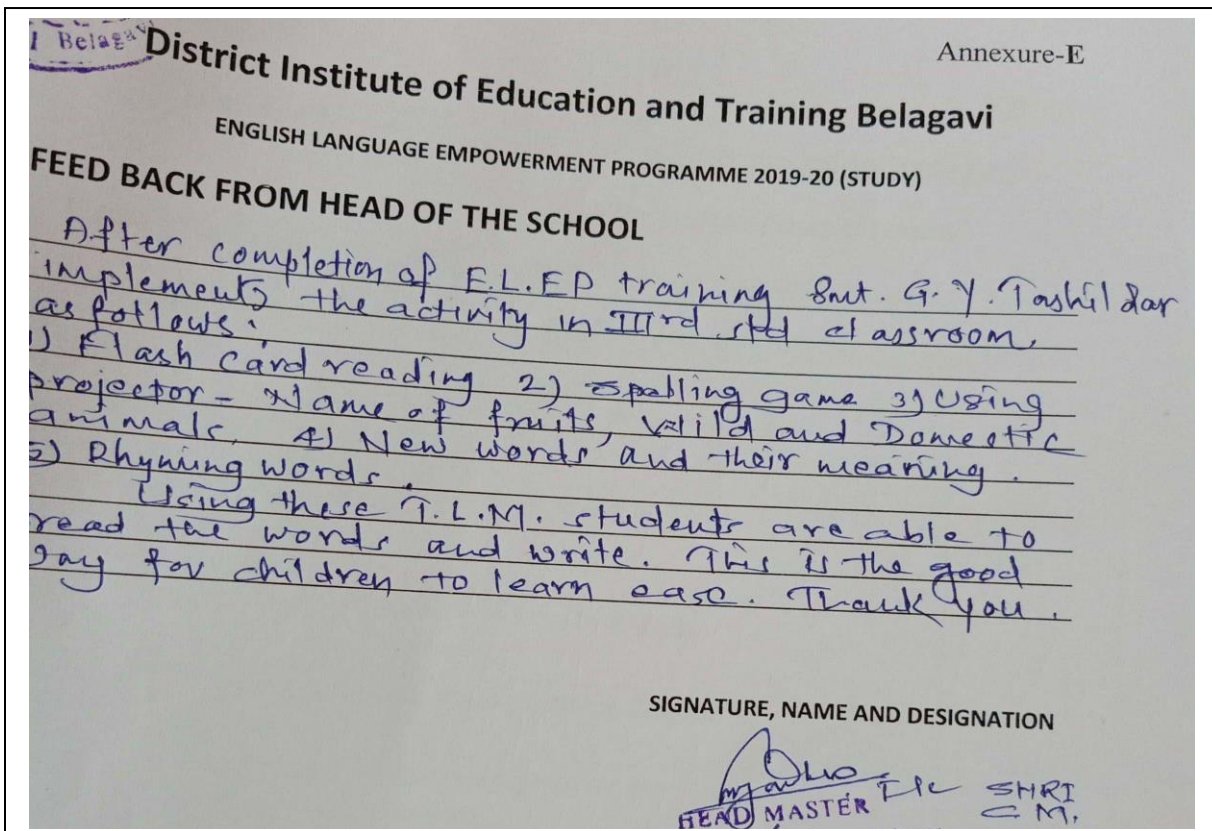 Belagavi
Annexure-E
District Institute of Education and Training Belagavi
ENGLISH LANGUAGE EMPOWERMENT PROGRAMME 2019-20 (STUDY)
FEED BACK FROM HEAD OF THE SCHOOL
After completion of E.L.EP training Smt. G. Y. Tashildar
implements the activity in IIIrd std classroom,
as follows.
1) Flash card reading 2) spelling game 3) Using
projector - Name of fruits, Wild and Domestic
animals, 4) New words and their meaning.
5) Rhyming words.
Using these T.L.M. students are able to
read the words and write. This is the good
way for children to learn ease. Thank you.
SIGNATURE, NAME AND DESIGNATION
I/C SHRI
C M.
HEAD MASTER